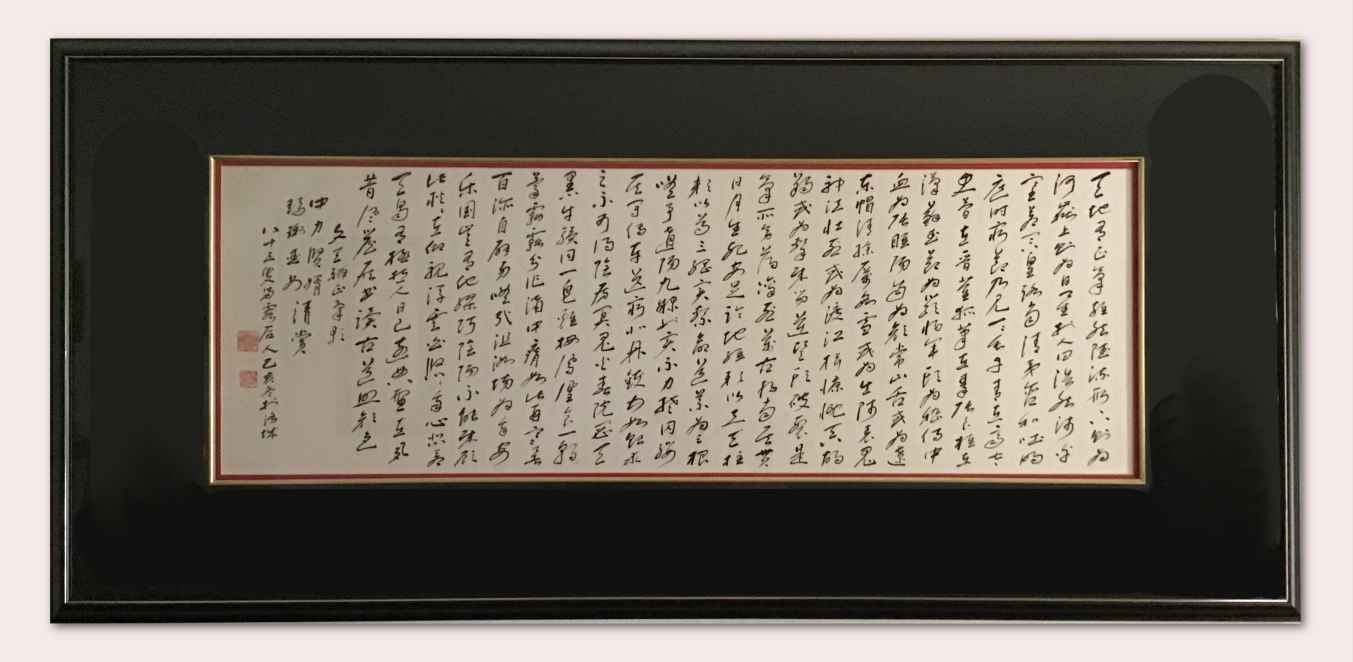 天地有正氣雜然賦流形下則為
河嶽上則為日星於人曰浩然沛乎
塞蒼冥皇路當清夷含和吐明
庭時窮節乃見一一垂丹青在齊太
史簡在晉董狐筆在秦張良椎在
漢蘇武節為嚴將軍頭為嵇侍中
血為張睢陽齒為顏常山舌或為遼
東帽清操厲冰雪或為出師表鬼
神泣壯烈或為渡江楫慷慨吞胡
羯或為擊賊笏逆豎頭破裂是
氣所磅礴凜烈萬古存當其貫
日月生死安足論地維賴以立天柱
賴以尊三綱實繫命道義為之根
嗟予遘陽九隸也實不力楚囚纓
其冠傳車送窮北鼎鑊甘如飴求
之不可得陰房闃鬼火春院閟天
黑牛驥同一皂雞棲鳳凰食一朝
蒙霧露分作溝中瘠如此再寒暑
百沴自辟易嗟哉沮洳場為我安
樂國豈有他繆巧陰陽不能賊顧
此耿耿在仰視浮雲白悠悠我心悲蒼
天曷有極哲人日已遠典型在夙
昔風簷展書讀古道照顏色
文天祥正氣歌
中力賢婿清賞
八十五叟居人己亥冬於